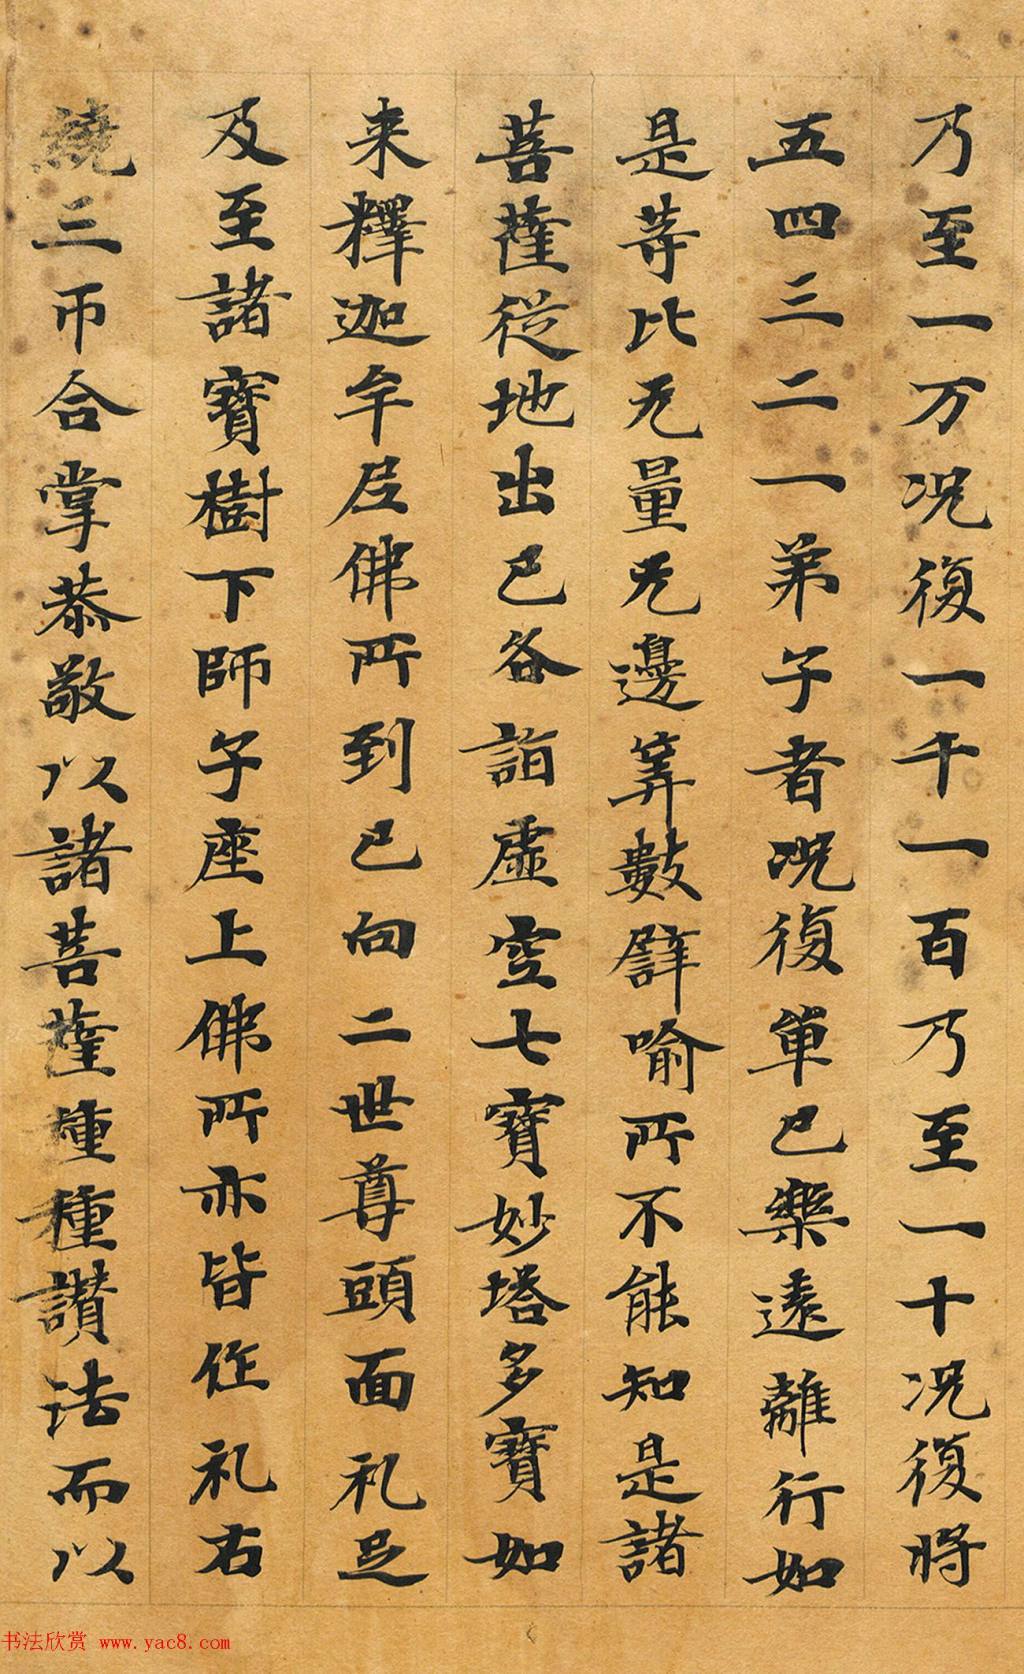 乃至一万况復一千一百乃至一十况復將
五四三二一弟子者况復單已樂遠離行如
是等比无量无邊筭數譬喻所不能知是諸
菩薩從地出已各詣虛空七寶妙塔多寶如
来釋迦牟尼佛所到已向二世尊頭面礼足
及至諸寶樹下師子座上佛所亦皆作礼右
繞三帀合掌恭敬以諸菩薩種種讚法而以
书法欣赏 www.yac8.com